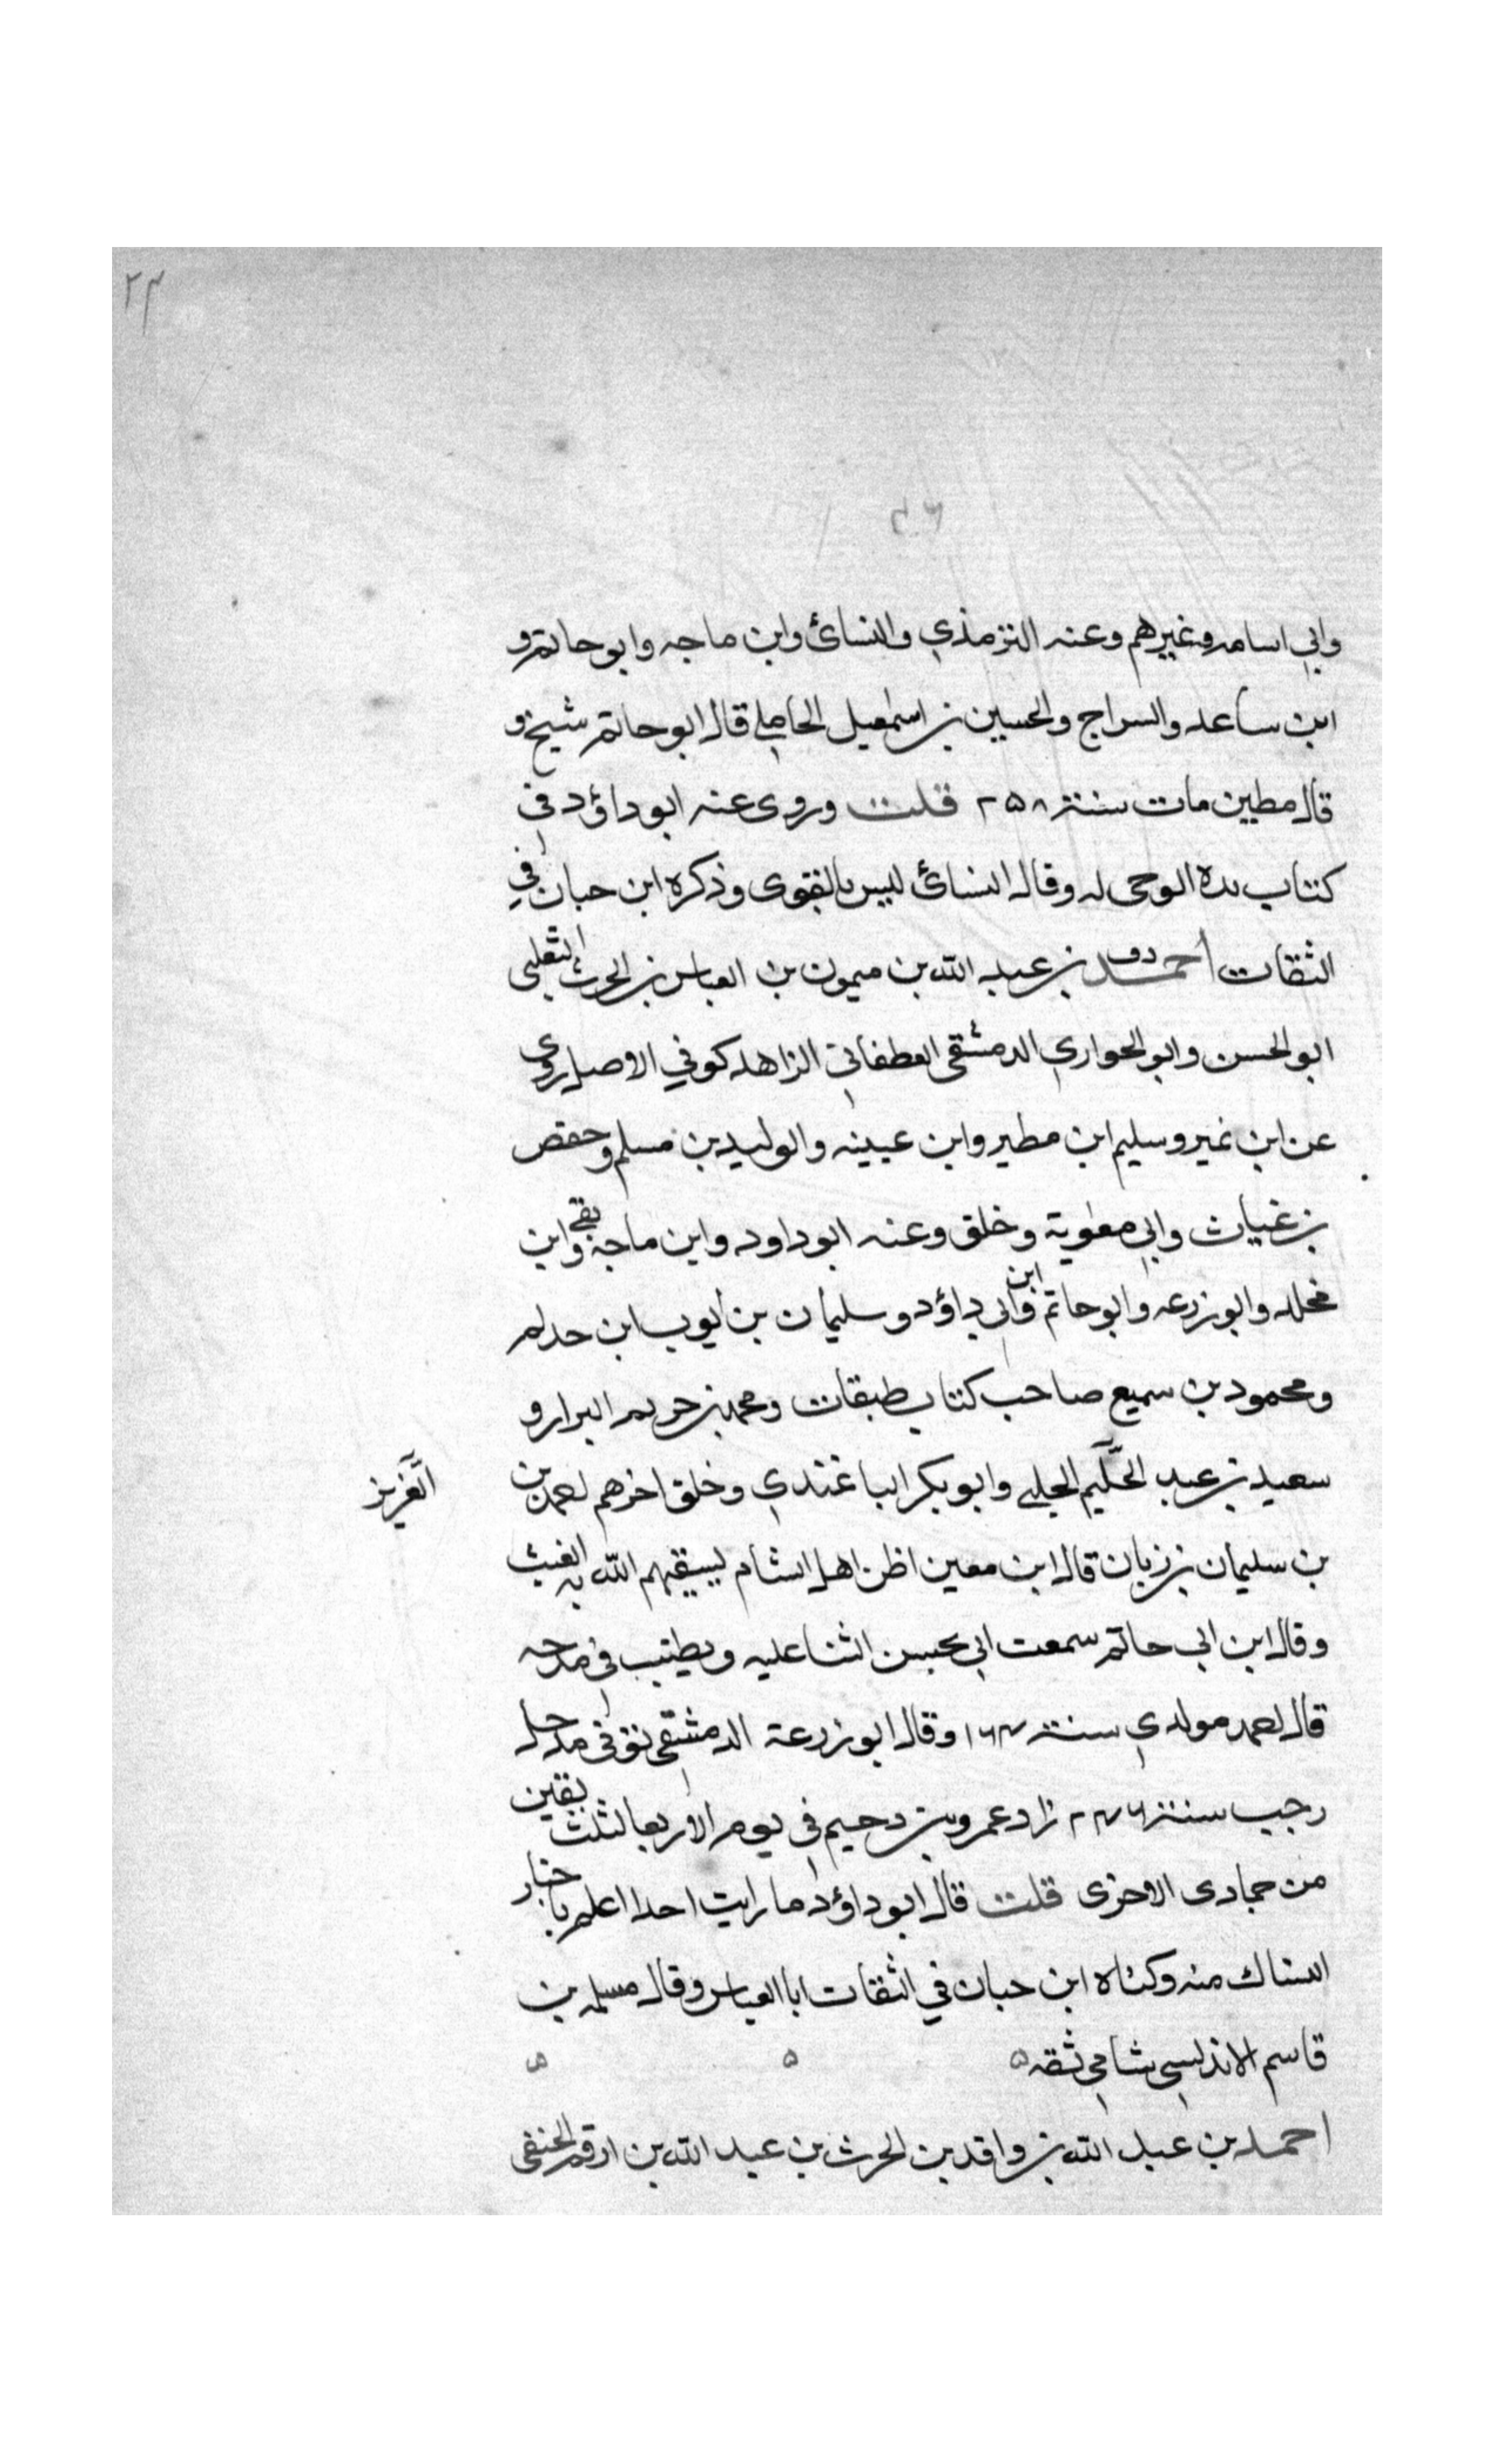 ٢٣
وابي اسامه وغيرهم وعنه الترمذي والنسائ وابن ماجه وابو حاتم و
ابن ساعد والسراج والحسين بن اسمعيل المحاملي قال ابو حاتم شيخ و
قال مطين مات سنة ٢٥٨ قلت وروى عنه ابو داؤد في
كتاب بدء الوحى له وقال النسائ ليس بالقوى وذكره ابن حبان في
الثقات احمد دق بن عبد الله بن ميمون بن العباس بن الحرث الثعلبى
ابو الحسن وابو الحواري الدمشقى الغطفانى الزاهد كوفي الاصل روى
عن ابن نمير وسليم ابن مطير وابن عيينه والوليد بن مسلم وحفص
بن غياث وابي معوية وخلق وعنه ابو داود وابن ماجه وبقى ابن
مخلد وابو زرعه وابو حاتم وابن ابى داؤد وسليمان بن ايوب ابن حدلم
ومحمود بن سميع صاحب كتاب طبقات ومحمد بن حريم البرار و
سعيد بن عبد الحكيم الحلبى وابو بكر الباغندي وخلق اخرهم احمد بن
العزيز
بن سليمان بن زبان قال ابن معين اظن اهل الشام يسقيهم الله به الغيث
وقال ابن ابى حاتم سمعت ابي يحسن الثنا عليه ويطنب في مدحه
قال احمد مولدي سنة ١٦٤ وقال ابو زرعة الدمشقى توفى مدخل
رجب سنة ٢٤٦ زاد عمرو بن دحيم في يوم الاربعا لثلث بقين
من جمادى الاخرى قلت قال ابو داؤد ما رايت احدا اعلم باخبار
النساك منه وكناه ابن حبان في الثقات ابا العباس وقال مسلمه بن
قاسم الاندلسى شامي ثقه ٥ ٥ ٥
احمد بن عبد الله بن واقد بن الحرث بن عبد الله بن ارقم الحنفى